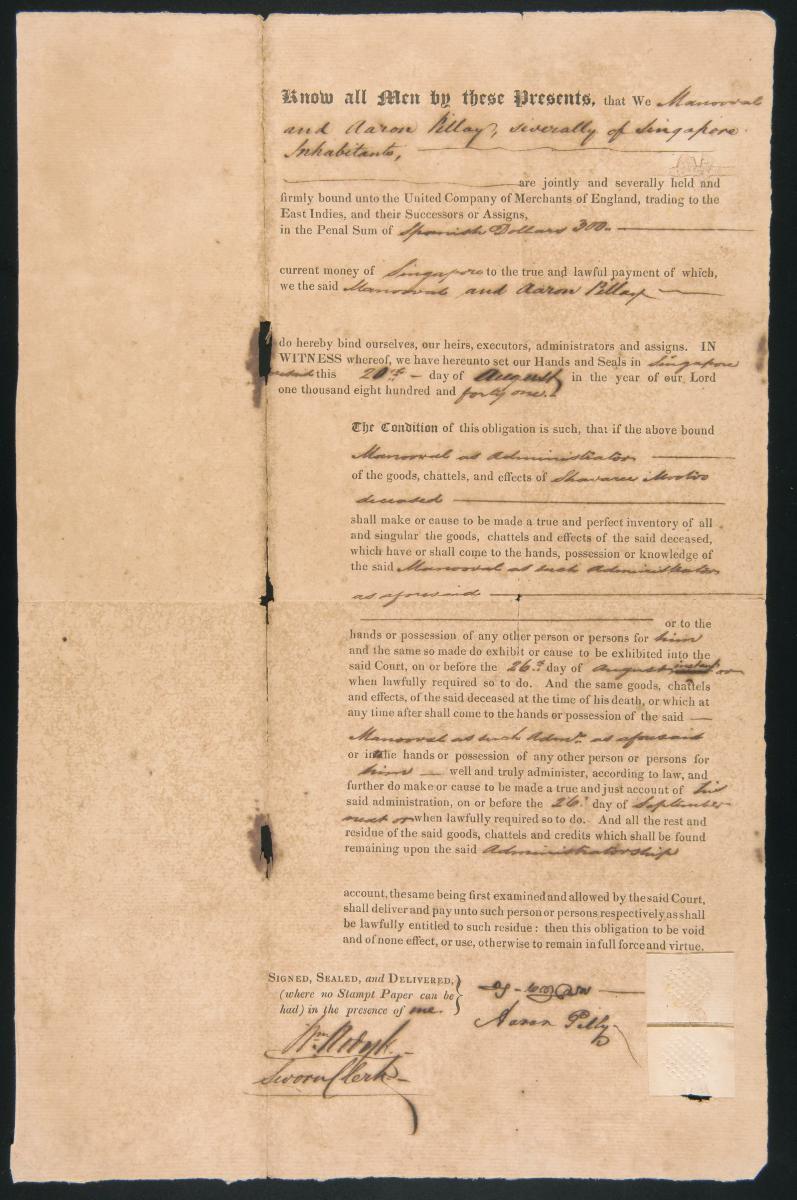 Know all Men by these Presents, that We Manoovel
and Aaron Pillay, severally of Singapore
Inhabitants,
are jointly and severally held and
firmly bound unto the United Company of Merchants of England, trading to the
East Indies, and their Successors or Assigns,
in the Penal Sum of Spanish Dollars 300.
current money of Singapore to the true and lawful payment of which,
we the said Manoovel and Aaron Pillay
do hereby bind ourselves, our heirs, executors, administrators and assigns. IN
WITNESS whereof, we have hereunto set our Hands and Seals in Singapore
this 20th day of August in the year of our Lord
one thousand eight hundred and forty one.
The Condition of this obligation is such, that if the above bound
Manoovel as Administrator
of the goods, chattels, and effects of Shavaree Mootoo
deceased
shall make or cause to be made a true and perfect inventory of all
and singular the goods, chattels and effects of the said deceased,
which have or shall come to the hands, possession or knowledge of
the said Manoovel as such Administrator
as aforesaid
or to the
hands or possession of any other person or persons for him
and the same so made do exhibit or cause to be exhibited into the
said Court, on or before the 26th day of August instant or
when lawfully required so to do. And the same goods, chattels
and effects, of the said deceased at the time of his death, or which at
any time after shall come to the hands or possession of the said
Manoovel as such Admr. as aforesaid
or into the hands or possession of any other person or persons for
him well and truly administer, according to law, and
further do make or cause to be made a true and just account of his
said administration, on or before the 26th day of September
next or when lawfully required so to do. And all the rest and
residue of the said goods, chattels and credits which shall be found
remaining upon the said Administratorship
account, the same being first examined and allowed by the said Court,
shall deliver and pay unto such person or persons respectively, as shall
be lawfully entitled to such residue: then this obligation to be void
and of none effect, or use, otherwise to remain in full force and virtue.
SIGNED, SEALED, and DELIVERED,
(where no Stampt Paper can be
had) in the presence of me.
Aaron Pilly
Sworn Clerk